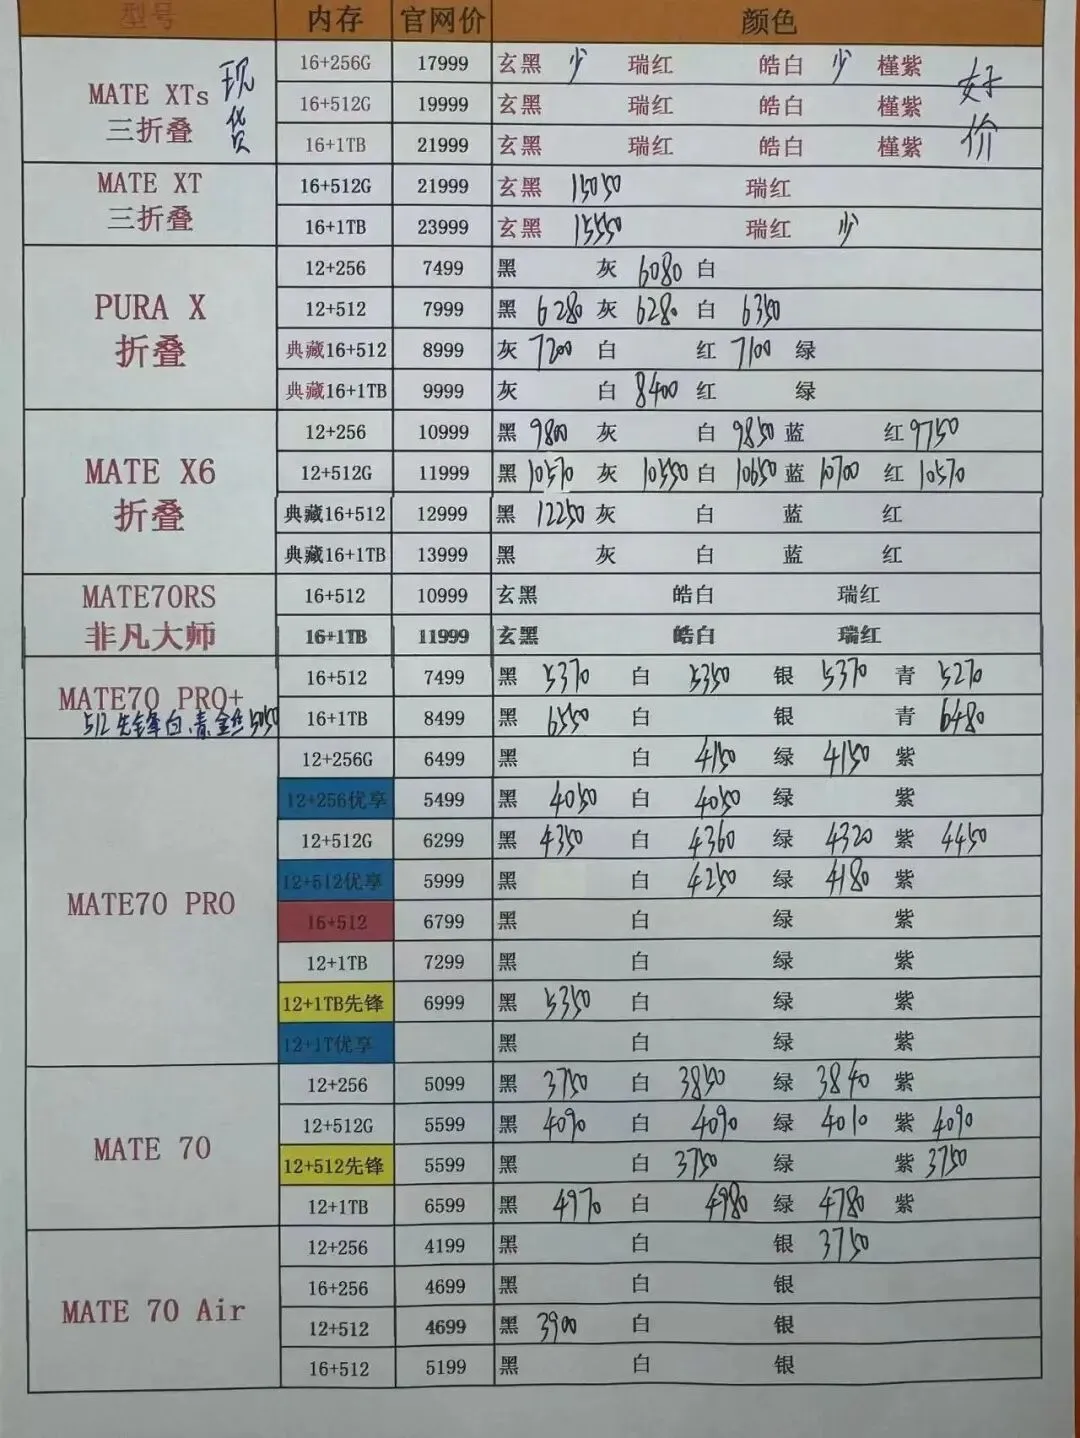 型号 内存 官网价 颜色
MATE XTs 三折叠 现货 16+256G 17999 玄黑 少 瑞红 皓白 少 槿紫 好价
16+512G 19999 玄黑 瑞红 皓白 槿紫
16+1TB 21999 玄黑 瑞红 皓白 槿紫
MATE XT 三折叠 16+512G 21999 玄黑 15050 瑞红
16+1TB 23999 玄黑 15550 瑞红 少
PURA X 折叠 12+256 7499 黑 灰 6080 白
12+512 7999 黑 6280 灰 6280 白 6350
典藏16+512 8999 灰 7200 白 红 7100 绿
典藏16+1TB 9999 灰 白 8400 红 绿
MATE X6 折叠 12+256 10999 黑 9800 灰 白 9850 蓝 红 9750
12+512G 11999 黑 10570 灰 10550 白 10650 蓝 10700 红 10570
典藏16+512 12999 黑 12250 灰 白 蓝 红
典藏16+1TB 13999 黑 灰 白 蓝 红
MATE70RS 非凡大师 16+512 10999 玄黑 皓白 瑞红
16+1TB 11999 玄黑 皓白 瑞红
MATE70 PRO+ 16+512 7499 黑 5370 白 5350 银 5370 青 5270
512先锋白.青.金丝5050 16+1TB 8499 黑 6550 白 银 青 6480
MATE70 PRO 12+256G 6499 黑 白 4150 绿 4150 紫
12+256优享 5499 黑 4050 白 4050 绿 紫
12+512G 6299 黑 4350 白 4360 绿 4320 紫 4450
12+512优享 5999 黑 白 4250 绿 4180 紫
16+512 6799 黑 白 绿 紫
12+1TB 7299 黑 白 绿 紫
12+1TB先锋 6999 黑 5350 白 绿 紫
12+1T优享 黑 白 绿 紫
MATE 70 12+256 5099 黑 3750 白 3850 绿 3840 紫
12+512G 5599 黑 4090 白 4090 绿 4010 紫 4090
12+512先锋 5599 黑 白 3750 绿 紫 3750
12+1TB 6599 黑 4970 白 4980 绿 4780 紫
MATE 70 Air 12+256 4199 黑 白 银 3750
16+256 4699 黑 白 银
12+512 4699 黑 3900 白 银
16+512 5199 黑 白 银